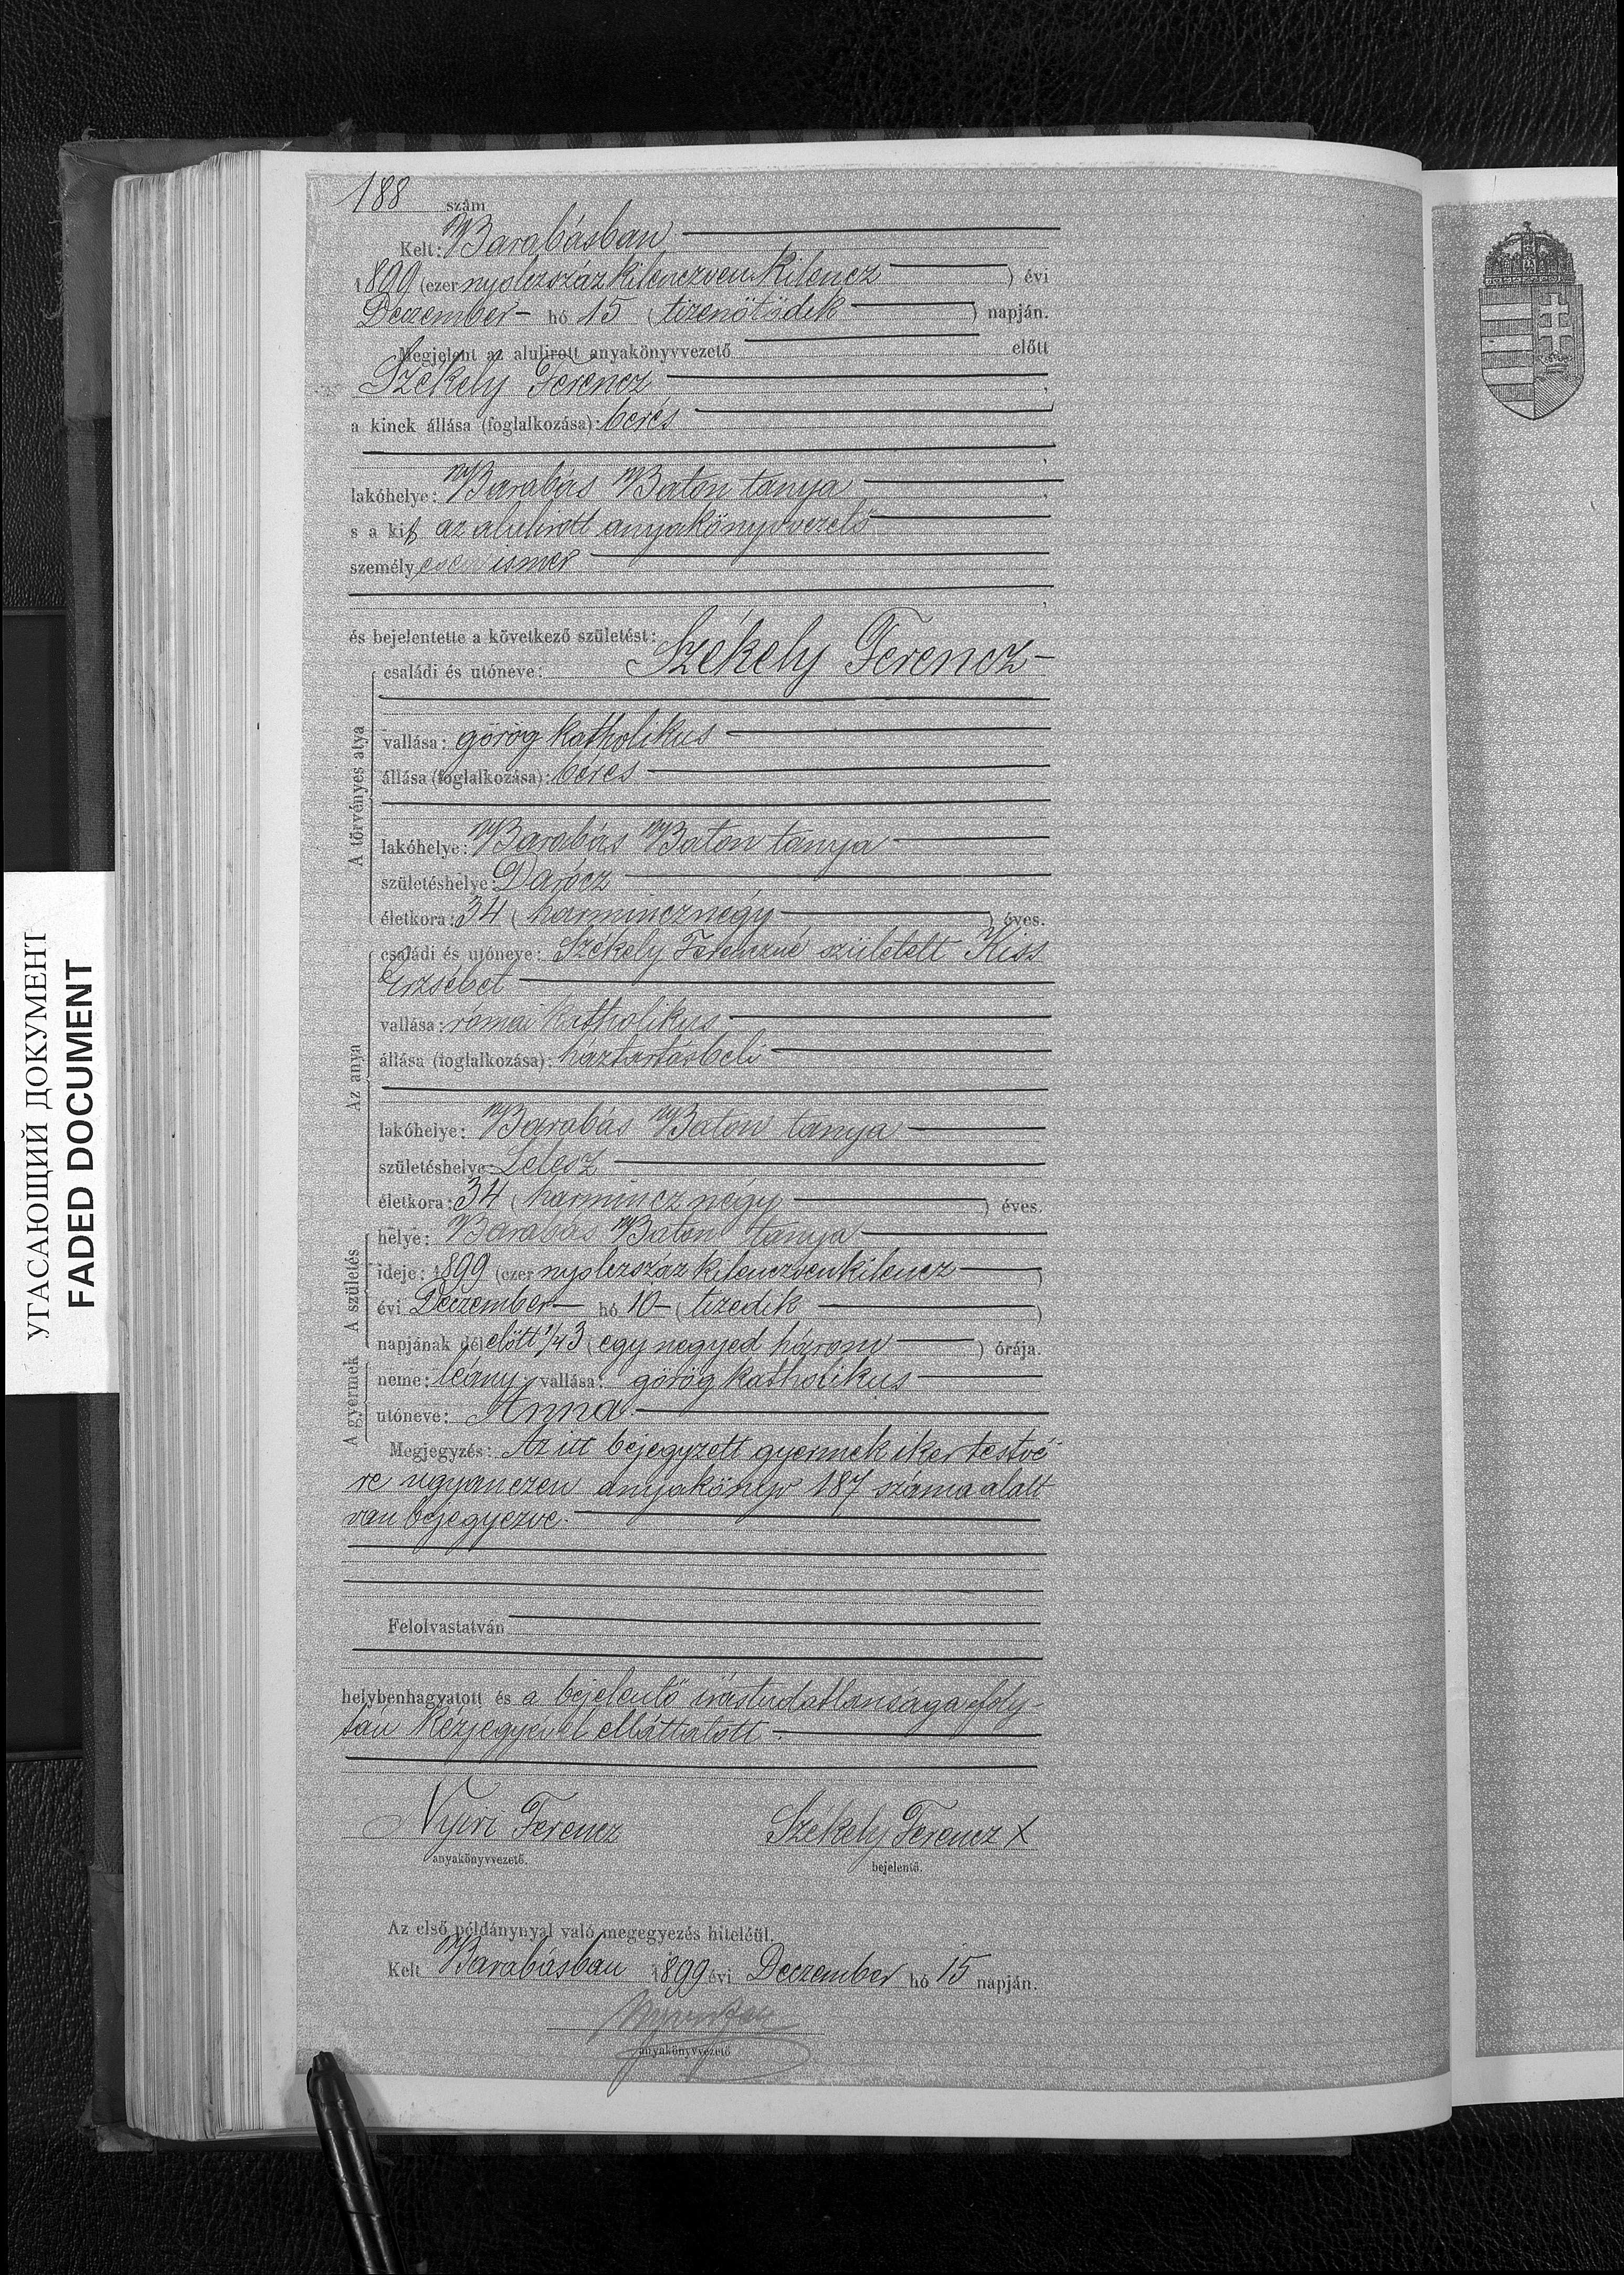 188 szám
Kelt: Barabásban
1899 (ezer nyolczszáz kilenczven kilencz) évi
Deczember hó 15 (tizenötödik) napján.
Megjelent az alulirott anyakönyvvezető előtt
Székely Ferencz
a kinek állása (foglalkozása): béres
lakóhelye: Barabás Baton tanya
s a kit az alulirott anyakönyvvezető
személyesen ismer
és bejelentette a következő születést:
A törvényes atya
családi és utóneve: Székely Ferencz
vallása: görög katholikus
állása (foglalkozása): béres
lakóhelye: Barabás Baton tanya
születéshelye: Darócz
életkora: 34 (harmincznégy) éves.
Az anya
családi és utóneve: Székely Ferenczné született Kiss
Erzsébet
vallása: római katholikus
állása (foglalkozása): háztartásbeli
lakóhelye: Barabás Baton tanya
születéshelye: Lelesz
életkora: 34 (harmincz négy) éves.
A születés
helye: Barabás Baton tanya
ideje: 1899 (ezer nyolczszáz kilenczvenkilencz)
évi Deczember hó 10 (tizedik)
napjának délelőtt 1/43 (egy negyed három) órája.
A gyermek
neme: leány vallása: görög katholikus
utóneve: Anna
Megjegyzés: Az itt bejegyzett gyermek iker testvé
re ugyanezen anyakönyv 187 száma alatt
van bejegyezve.
Felolvastatván
helybenhagyatott és a bejelentő irástudatlansága foly-
tán kézjegyével elláttatott.
Nyiri Ferencz Székely Ferencz X
anyakönyvvezető. bejelentő.
Az első példánynyal való megegyezés hiteléül.
Kelt Barabásban 1899 évi Deczember hó 15 napján.
anyakönyvvezető
УГАСАЮЩИЙ ДОКУМЕНТ
FADED DOCUMENT